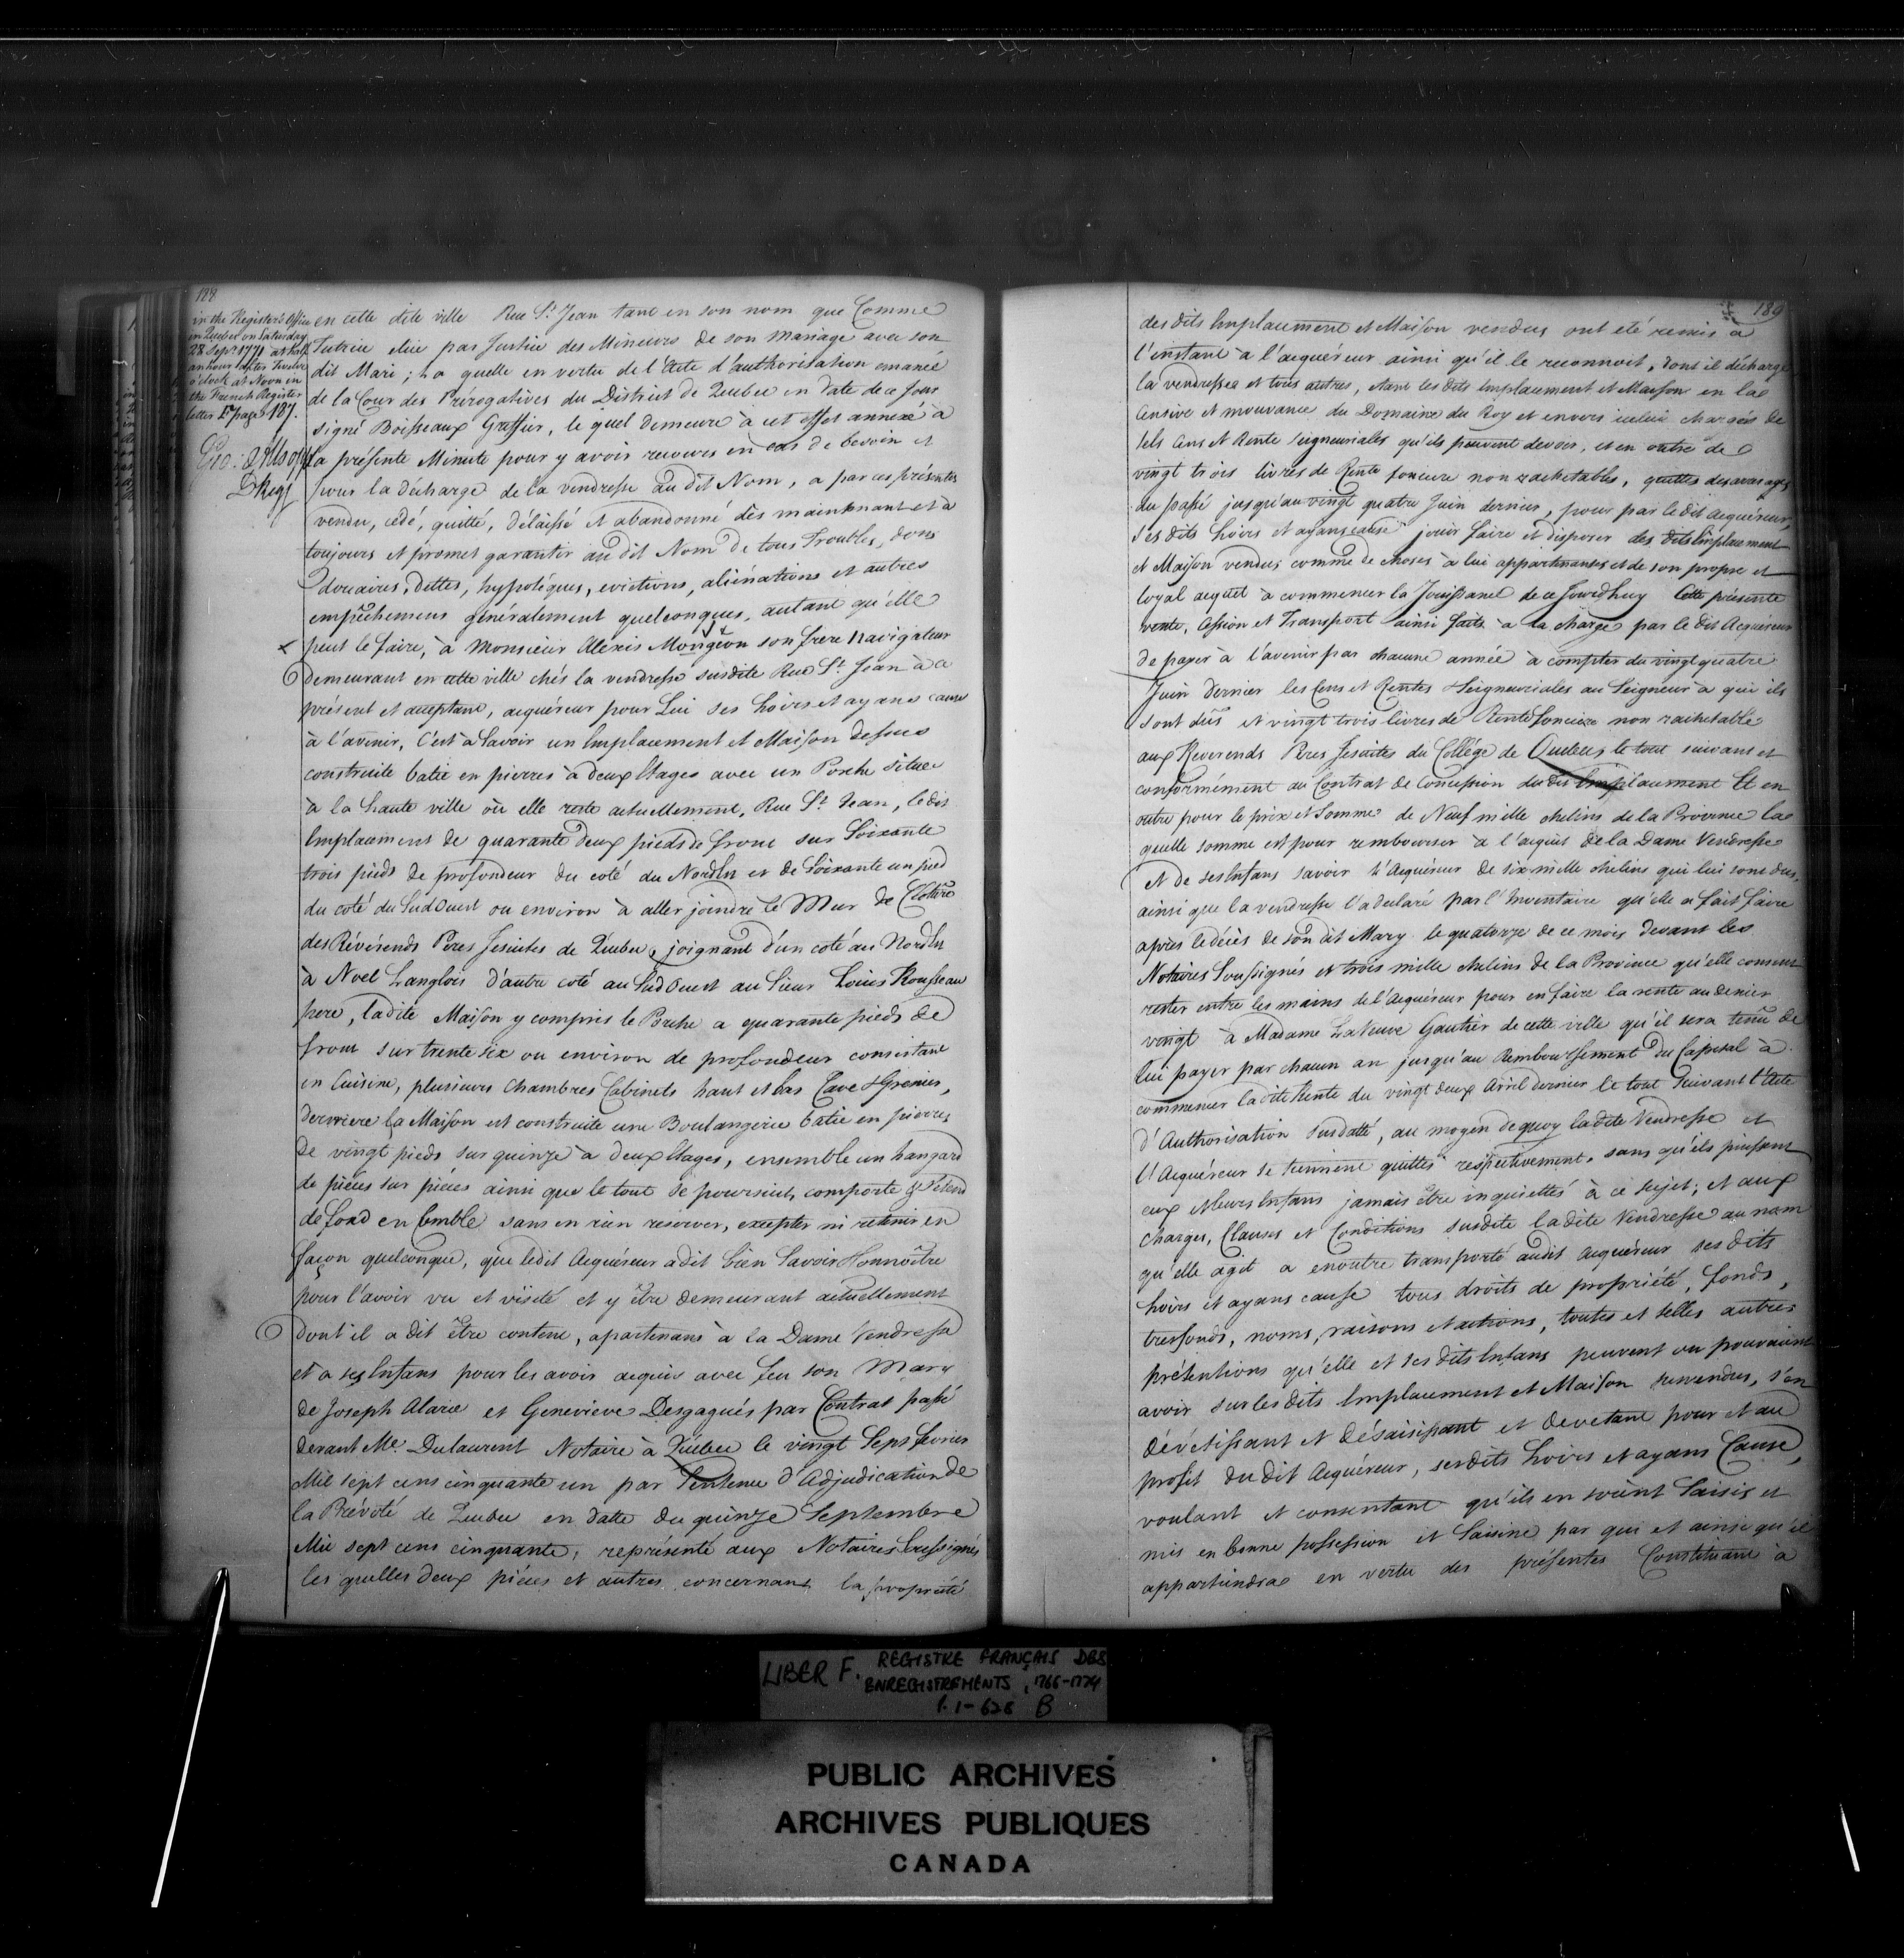 188
in the Register's Office
in Quebec on Saturday
28 Sepr. 1771 at half
an hour after Twelve
o'clock at Noon in
the French Register
letter F page 187.
Geo: Allsopp
D Regr
en cette dite ville Rue St. Jean tant en son nom que Comme
Tutrice élue par Justice des Mineurs de son Mariage avec son
dit Mari ; La quelle en vertu de l'Acte d'authorisation émancé
de la Cour des Prérogatives du District de Quebec en date de ce jour
signé Boisseaux Greffier, le quel demeure à cet effet annexé à
la présente Minute pour y avoir recours en cas de besoin et
pour la décharge de la vendresse au dit Nom, a par ces présentes
vendu, cedé, quitté, délaissé et abandonné dès maintenant et à
toujours et promet garantir au dit Nom de tous Troubles, dons
douaires, dettes, hypotéques, evictions, aliénations et autres
empêchemens généralement quelconques, autant qu'elle
peut le faire, à Monsieur Alexis Mongeon son frere Navigateur
demeurant en cette ville chés la vendresse susdite Rue St. Jean à ce
présent et acceptant, acquéreur pour Lui ses hoirs et ayans cause
à l'avenir, C'est à Savoir un Emplacement et Maison dessus
construite batie en pierres à deux Etages avec un Porche située
à la haute ville où elle reste actuellement, Rue St. Jean, le dit
Emplacement de quarante deux pieds de front sur Soixante
trois pieds de profondeur du coté du Nord Est et de Soixante un pied
du coté du Sud Ouest ou environ à aller joindre le Mur de Cloture
des Révérends Peres Jesuites de Quebec, joignant d'un coté au Nord Est
à Noel Langlois d'autre coté au Sud Ouest au Sieur Louis Rousseau
pere, ladite Maison y compris le Porche a quarante pieds de
front sur trente six ou environ de profondeur consistant
en Cuisine, plusieurs Chambres Cabinets haut et bas Cave & Grenier,
derriere la Maison est construite une Boulangerie batie en pierres
de vingt pieds sur quinze à deux Etages, ensemble un hangard
de pièces sur pièces ainsi que le tout se poursuit, comporte & s'étend
de fond en Comble sans en rien reserver, excepter ni retenir en
façon quelconque, que ledit Acquéreur a dit bien Savoir & Connoître
pour l'avoir vu et visité et y être demeurant actuellement
dont il a dit être content, apartenans à la Dame Vendresse
et a ses Enfans pour les avoir acquis avec feu son Mary
de Joseph Alarie et Genevieve Desgagnés par Contrat passé
devant Me. Dulaurent Notaire à Québec le vingt Sept fevrier
Mil sept cens cinquante un par Sentence d'Adjudication de
la Prévôté de Quebec en datte du quinze Septembre
Mil sept cens cinquante, représenté aux Notaires Soussignés
les quelles deux pièces et autres concernant la propriété
189
des dits Emplacement et Maison vendus ont été remis à
l'instant à l'acquéreur ainsi qu'il le reconnoit, dont il décharge
la vendresse et tous autres, étant les dits Emplacement et Maison en la
Censive et mouvance du Domaine du Roy et envers icelui chargés de
tels Cens et Rente Seigneuriales qu'ils peuvent devoir, et en outre de
vingt trois livres de Rente fonciere non rachetables, quittes des arrerages
du passé jusqu'au vingt quatre Juin dernier, pour par le dit Acquéreur,
ses dits hoirs et ayans cause jouir faire et disposer des dits Emplacement
et Maison vendus comme de choses à lui appartenantes et de son propre et
loyal acquêt à commencer la Jouissance de ce Jourd'huy Cette présente
vente, Cession et Transport ainsi faite à la charge par le dit Acquéreur
de payer à l'avenir par chacune année à compter du vingt quatre
Juin dernier les Cens et Rentes Seigneuriales au Seigneur à qui ils
sont dûs et vingt trois livres de Rente fonciere non rachetable
aux Reverends Peres Jesuites du Collége de Quebec, le tout suivant et
conformément au Contrat de Concession du dit Emplacement Et en
outre pour le prix et Somme de Neuf mille chelins de la Province la
quelle somme est pour rembourser à l'acquit de la Dame Vendresse
et de ses Enfans savoir à l'Acquéreur de six mille chelins qui lui sont dus,
ainsi que la vendresse l'a declaré par l'Inventaire qu'elle a fait faire
après le décès de son dit Mary le quatorze de ce mois devant les
Notaires Soussignés et trois mille chelins de la Province qu'elle consent
rester entre les mains de l'Acquéreur pour en faire la rente au denier
vingt à Madame La Veuve Gautier de cette ville qu'il sera tenu de
lui payer par chacun an jusqu'au Remboursement du Capital à
commencer la dite Rente du vingt deux Avril dernier le tout suivant l'Acte
d'Authorisation susdatté, au moyen de quoy ladite Vendresse et
l'Acquéreur se tiennent quittes respectivement, sans qu'ils puissent
eux et leurs Enfans jamais être inquiettés à ce sujet ; et aux
charges, Clauses et Conditions susdite ladite Vendresse au nom
qu'elle agit a en outre transporté audit acquéreur ses dits
hoirs et ayans cause tous droits de propriété, fonds,
tresfonds, noms, raisons et actions, toutes et telles autres
prétentions qu'elle et ses dits Enfans peuvent ou pouvaient
avoir sur les dits Emplacement et Maison survendus, s'en
dévétissant et désaisissant et devetant pour et au
profit du dit Acquéreur, ses dits hoirs et ayans Cause,
voulant et consentant qu'ils en soient Saisis et
mis en bonne possession et Saisine par qui et ainsi qu'il
appartiendra en vertu des présentes Constituant à
LIBER F. REGISTRE FRANÇAIS DES
ENREGISTREMENTS, 1766-1774
P. 1-626 B
PUBLIC ARCHIVES
ARCHIVES PUBLIQUES
CANADA